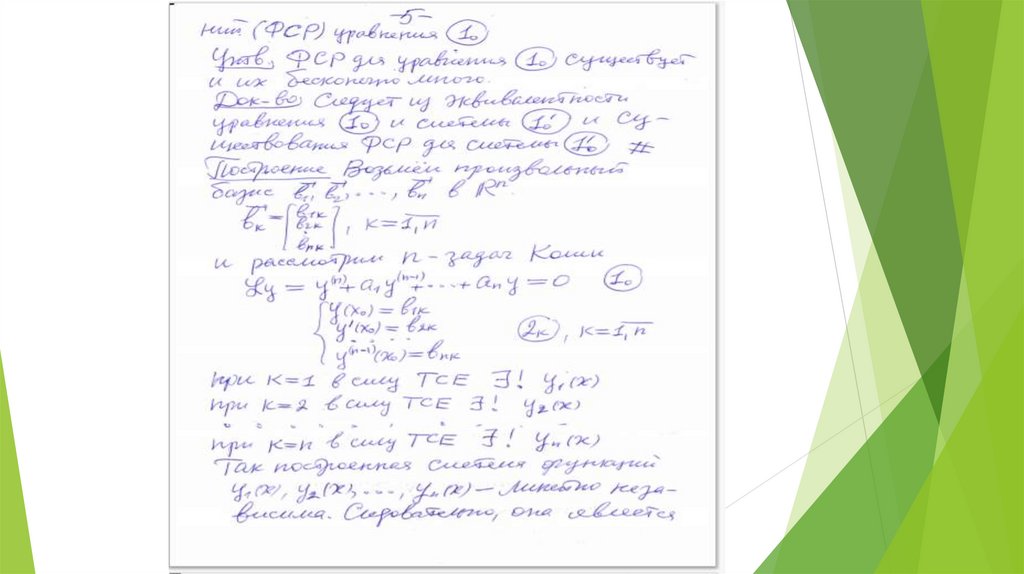 -5-
ний (ФСР) уравнения 1₀
Утв. ФСР для уравнения 1₀ существует
и их бесконечно много.
Док-во Следует из эквивалентности
уравнения 1₀ и системы 1₀' и су-
ществования ФСР для системы 1₀' #
Построение Возьмём произвольный
базис b⃗₁, b⃗₂, ..., b⃗ₙ в Rⁿ.
b⃗ₖ = [b₁ₖ b₂ₖ ⋮ bₙₖ], k=1,n̅
и рассмотрим n-задач Коши
Ly = y⁽ⁿ⁾ + a₁y⁽ⁿ⁻¹⁾ + ... + aₙy = 0 1₀
{ y(x₀) = b₁ₖ
y'(x₀) = b₂ₖ 2ₖ, k=1,n̅
. . . . .
y⁽ⁿ⁻¹⁾(x₀) = bₙₖ
при k=1 в силу ТСЕ ∃! y₁(x)
при k=2 в силу ТСЕ ∃! y₂(x)
. . . . . . . .
при k=n в силу ТСЕ ∃! yₙ(x)
Так построенная система функций
y₁(x), y₂(x), ..., yₙ(x) – линейно неза-
висима. Следовательно, она является